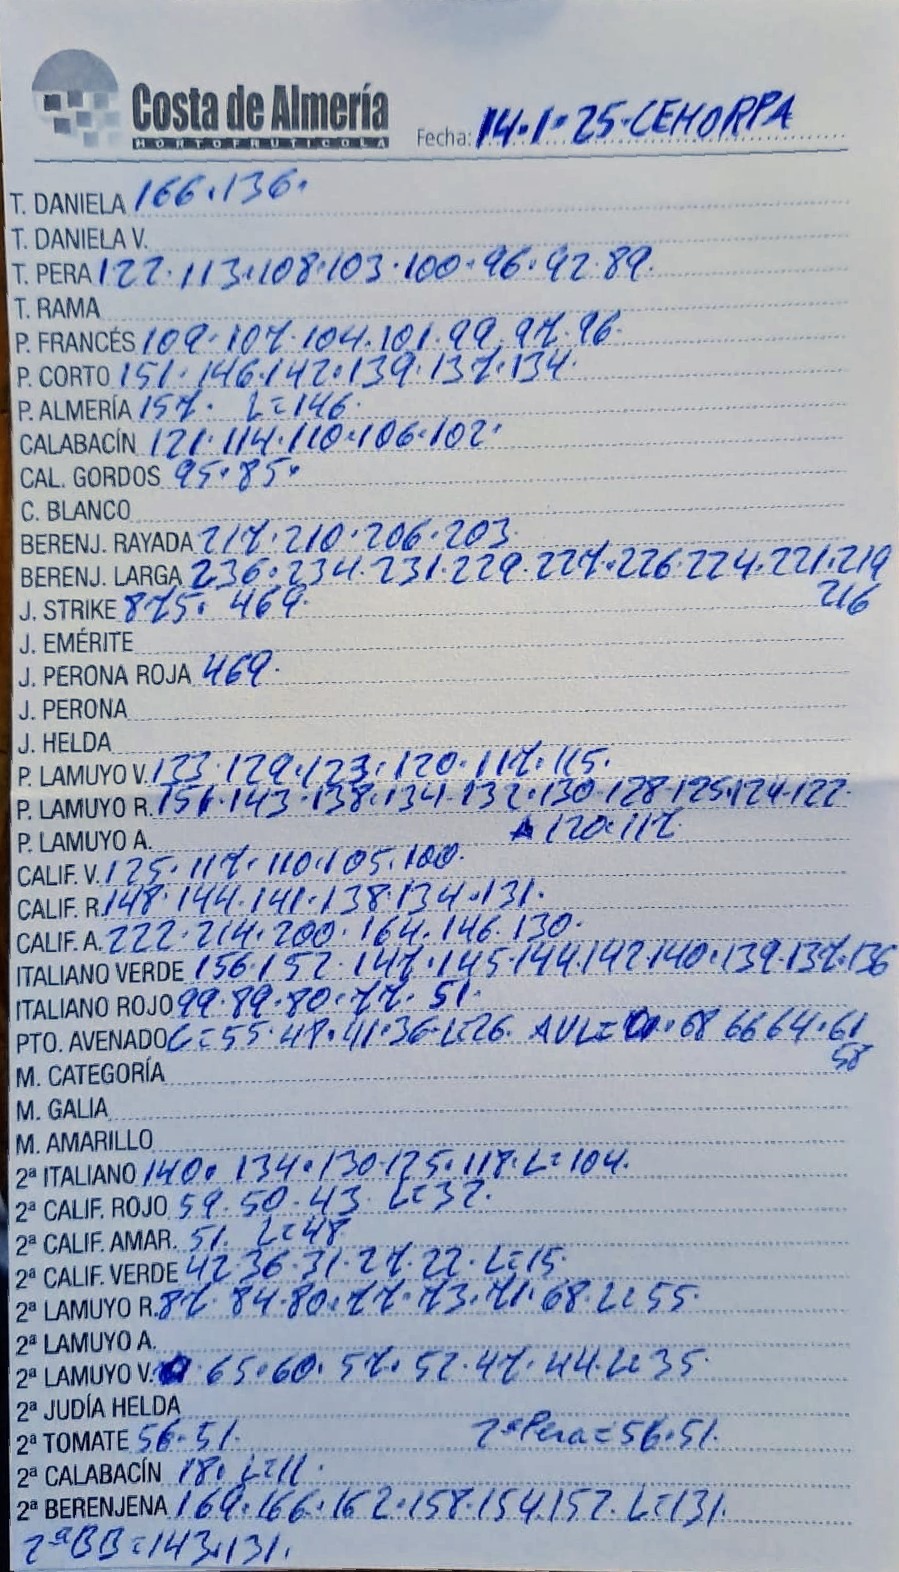 Costa de Almería
HORTOFRUTICOLA
Fecha: 14.1.25.CEHORPA
T. DANIELA 166.136.
T. DANIELA V.
T. PERA 122.113.108.103.100.96.92.89.
T. RAMA
P. FRANCÉS 109.107.104.101.99.97.96.
P. CORTO 151.146.142.139.137.134.
P. ALMERÍA 157. L=146.
CALABACÍN 121.114.110.106.102.
CAL. GORDOS 95.85.
C. BLANCO
BERENJ. RAYADA 217.210.206.203.
BERENJ. LARGA 236.234.231.229.227.226.224.221.219
216
J. STRIKE 875. 469.
J. EMÉRITE
J. PERONA ROJA 469.
J. PERONA
J. HELDA
P. LAMUYO V. 133.129.123.120.117.115.
P. LAMUYO R. 151.143.138.134.132.130.128.125.124.122.
120.117
P. LAMUYO A.
CALIF. V. 125.117.110.105.100.
CALIF. R. 148.144.141.138.134.131.
CALIF. A. 222.214.200.164.146.130.
ITALIANO VERDE 156.152.147.145.144.142.140.139.137.136
ITALIANO ROJO 99.89.80.77. 51.
PTO. AVENADO C=55.47.41.36.L=26. AVL= .68 66 64.61
58
M. CATEGORÍA
M. GALIA
M. AMARILLO
2ª ITALIANO 140. 134.130.125.117.L=104.
2ª CALIF. ROJO 59.50.43. L=32.
2ª CALIF. AMAR. 51. L=48
2ª CALIF. VERDE 42 36.31.27.22.L=15.
2ª LAMUYO R. 87.84.80.77.73.71.68.L=55.
2ª LAMUYO A.
2ª LAMUYO V. 65.60.57.52.47.44.L=35.
2ª JUDÍA HELDA
2ª TOMATE 56.51. 2ªPera=56.51.
2ª CALABACÍN 18. L=11.
2ª BERENJENA 169.166.162.158.154.152.L=131.
2ªBB=143.131.